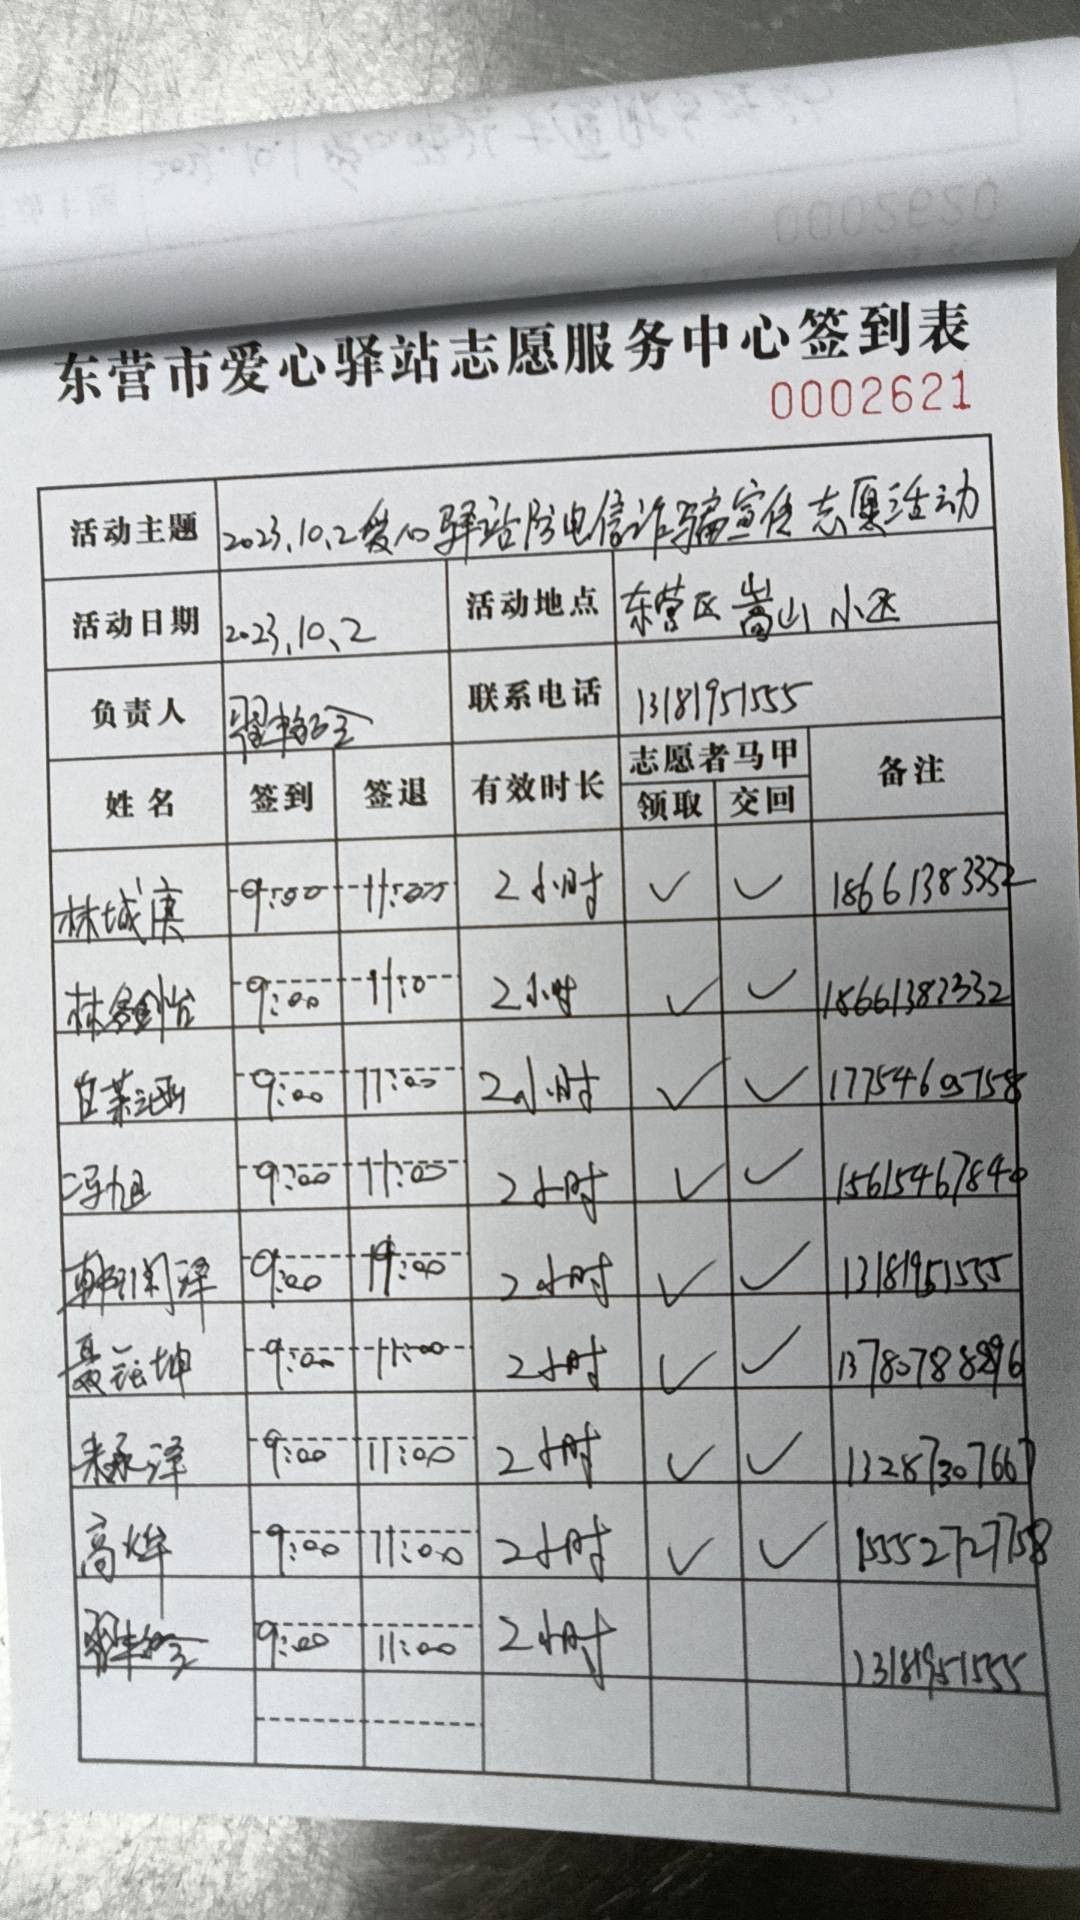 0002620
东营市爱心驿站志愿服务中心签到表
0002621
活动主题 2023.10.2爱心驿站防电信诈骗宣传志愿活动
活动日期 2023.10.2 活动地点 东营区嵩山小区
负责人 联系电话 13181951555
姓名 签到 签退 有效时长 志愿者马甲 备注
领取 交回
林城 9:00 11:00 2小时 ✓ ✓ 18661383332
林 9:00 11:0 2小时 ✓ ✓ 18661383332
9:00 11:00 2小时 ✓ ✓ 17754695758
冯旭 9:00 11:00 2小时 ✓ ✓ 15615467840
韩润泽 9:00 11:00 2小时 ✓ ✓ 13181951555
聂坤 9:00 11:00 2小时 ✓ ✓ 13780788896
承泽 9:00 11:00 2小时 ✓ ✓ 13287307667
高烨 9:00 11:00 2小时 ✓ ✓ 15552727758
9:00 11:00 2小时 13181951555